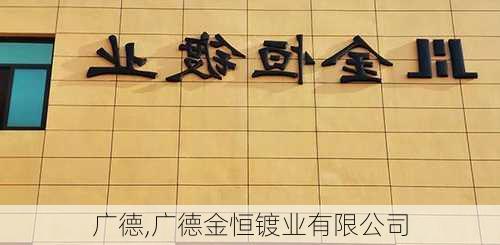 金恒镀业
广德,广德金恒镀业有限公司